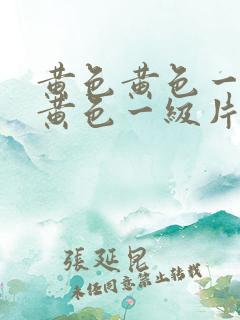 黄色黄色一
黄色一級片
張延昆
未任同意禁止转载